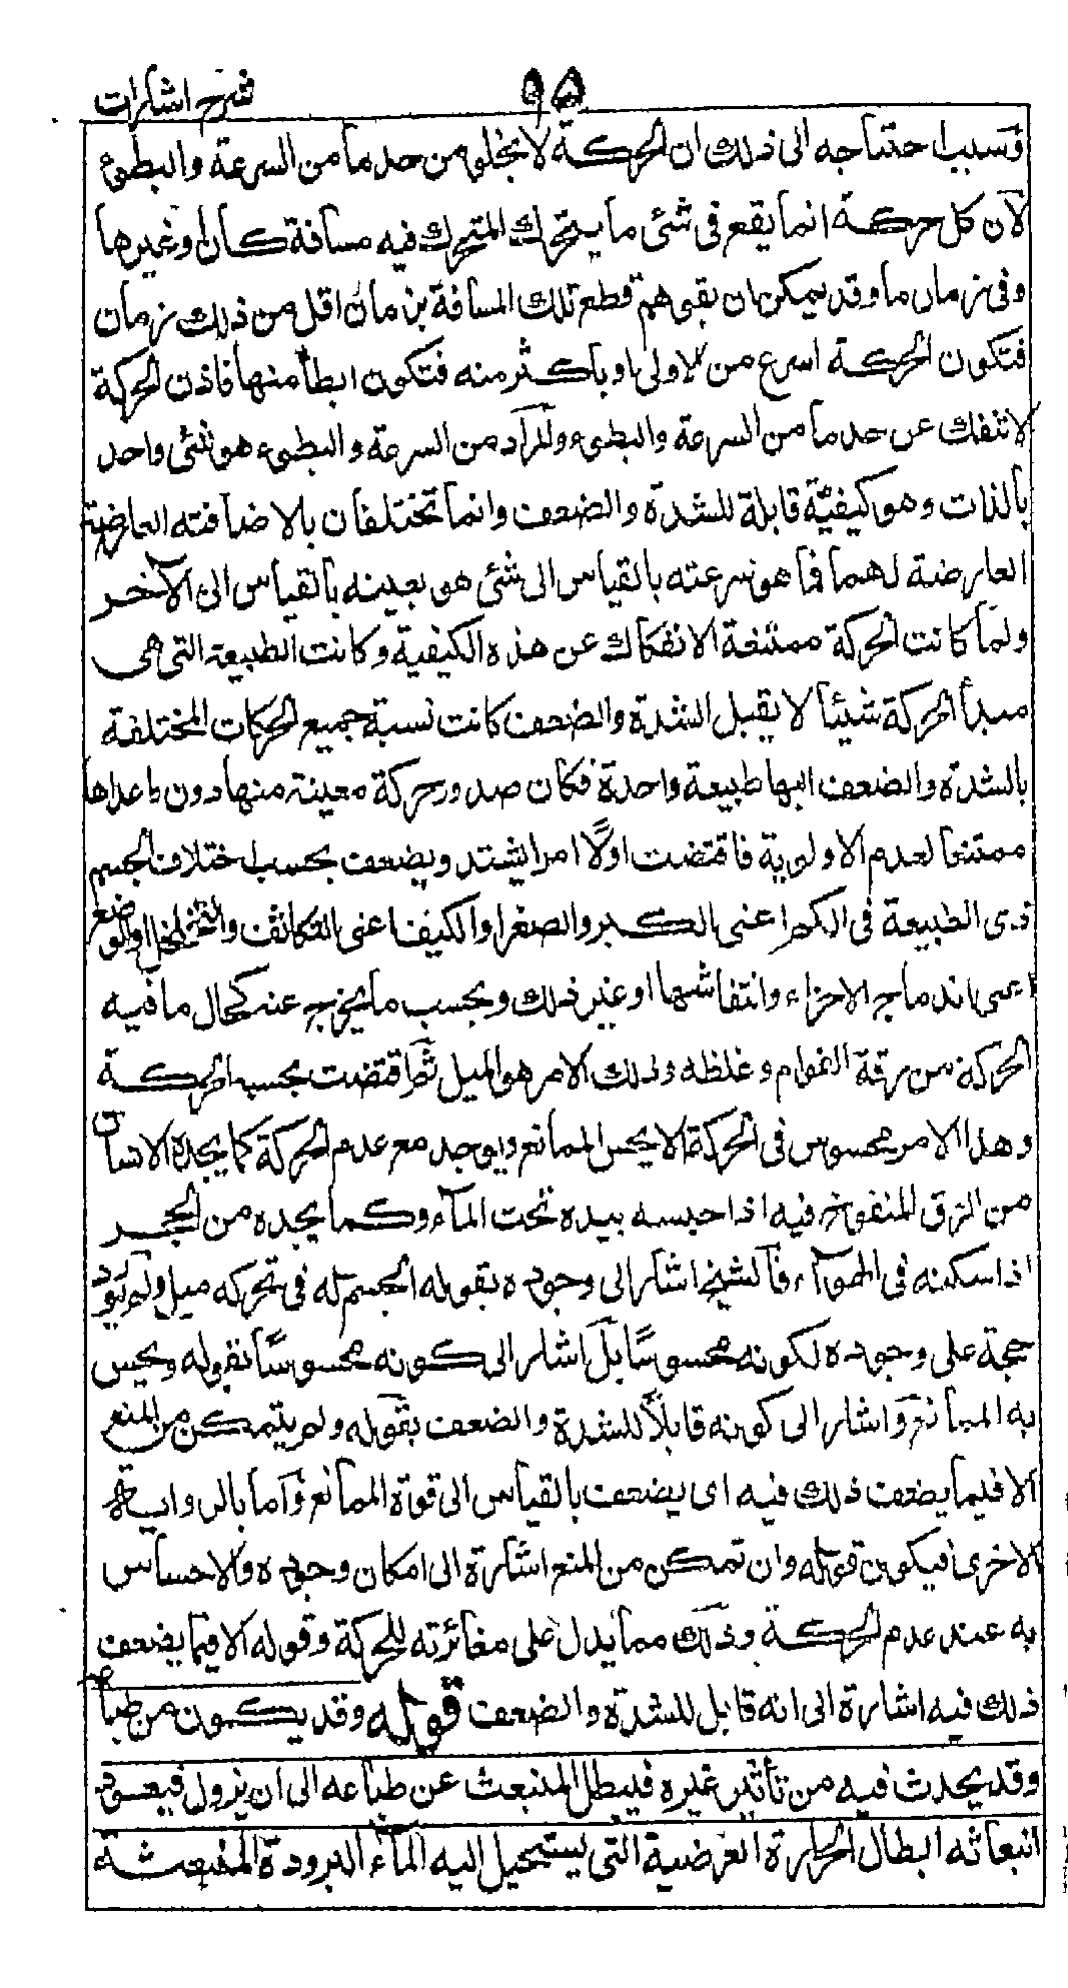 ٩٥
شرح اشارات
وسبب احتياجه الى ذلك ان الحركة لا يخلو من حد ما من السرعة والبطوء
لان كل حركة انما يقع فى شئ ما يتحرك المتحرك فيه مسافة كان او غيرها
وفى زمان ما وقد يمكن ان يتوهم قطع تلك المسافة بزمان اقل من ذلك زمان
فتكون الحركة اسرع من الاولى او باكثر منه فتكون ابطأ منها فاذن الحركة
لا تنفك عن حد ما من السرعة والبطوء والمراد من السرعة والبطوء هو شئ واحد
بالذات وهو كيفيّة قابلة للشدة والضعف وانما تختلفان بالاضافته العارضية
العارضة لهما فما هو سرعته بالقياس الى شئ هو بعينه بالقياس الى الآخر
ولما كانت الحركة ممتنعة الانفكاك عن هذه الكيفية وكانت الطبيعة التى هى
مبدأ الحركة شيئا لا يقبل الشدة والضعف كانت نسبة جميع الحركات المختلفة
بالشدة والضعف اليها طبيعة واحدة فكان صدور حركة معينة منها دون ما عداها
ممتنعا لعدم الاولوية فاقتضت اولًا امرا يشتد ويضعف بحسب اختلاف الجسم
ذى الطبيعة فى الكم اعنى الكبر والصغر او الكيف اعنى التكاثف والتخلخل او الوضع
اعنى اندماج الاجزاء وانتفاشها او غير ذلك وبحسب ما يخرج عنه كحال ما فيه
الحركة من رقة القوام وغلظه وذلك الامر هو الميل ثم اقتضت بحسبه الحركة
وهذا الامر محسوس فى الحركة الايحس الممانع ويوجد مع عدم الحركة كما يجده الانسان
من الزق المنفوخ فيه اذا حبسه بيده تحت المآء وكما يجده من الحجر
اذا سكنه فى الهوآء فالشيخ اشار الى وجوده بقوله الجسم له فى تحركه ميل ولم يورد
حجة على وجوده لكونه محسوسًا بل اشار الى كونه محسوسًا بقوله ويحس
به الممانع واشار الى كونه قابلًا للشدة والضعف بقوله ولم يتمكن من المنع
الا فيما يضعف ذلك فيه اى يضعف بالقياس الى قوة الممانع واما بالرواية
الاخرى فيكون قوله وان تمكن من المنع اشارة الى امكان وجوده والاحساس
به عند عدم الحركة وذلك مما يدل على مغائرته للحركة وقوله الا فيما يضعف
ذلك فيه اشارة الى انه قابل للشدة والضعف قوله وقد يكون من طباعه
وقد يحدث فيه من تأثير غيره فيبطل المنبعث عن طباعه الى ان يزول فيعود
انبعاثه ابطال الحرارة العرضية التى يستحيل اليه المآء البرودة المنبعثة